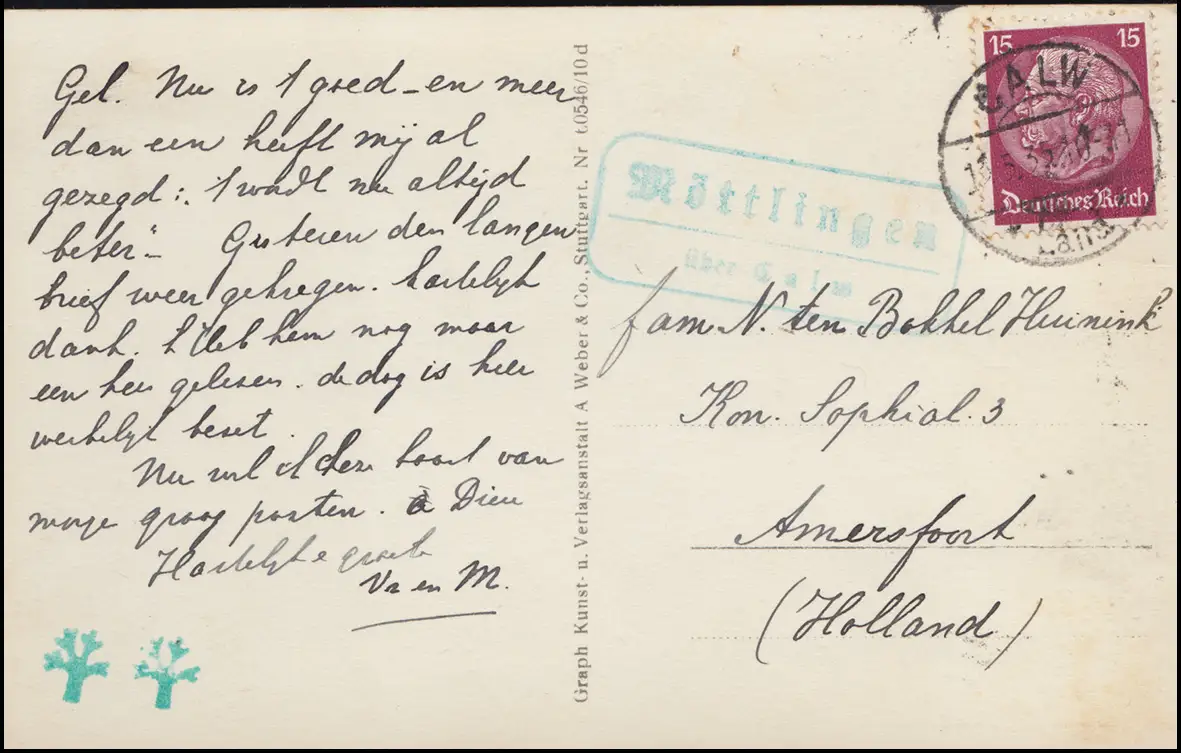 Gel. Nu is 't goed – en meer
dan een heeft mij al
gezegd: 't wordt nu altijd
beter".– Gisteren den langen
brief weer gekregen. hartelijk
dank. k Heb hem nog maar
een keer gelezen. de dag is hier
werkelijk bezet.
Nu wil ik deze kaart van
morge graag posten. à Dieu
Hartelijke groet
Va en M.
Graph Kunst- u. Verlagsanstalt A Weber & Co., Stuttgart. Nr t.0546/10d
15 15
Deutsches Reich
CALW
Land
Möttlingen
über Calw
fam. N. ten Bokkel Huinink
Kon. Sophial. 3
Amersfoort
(Holland)